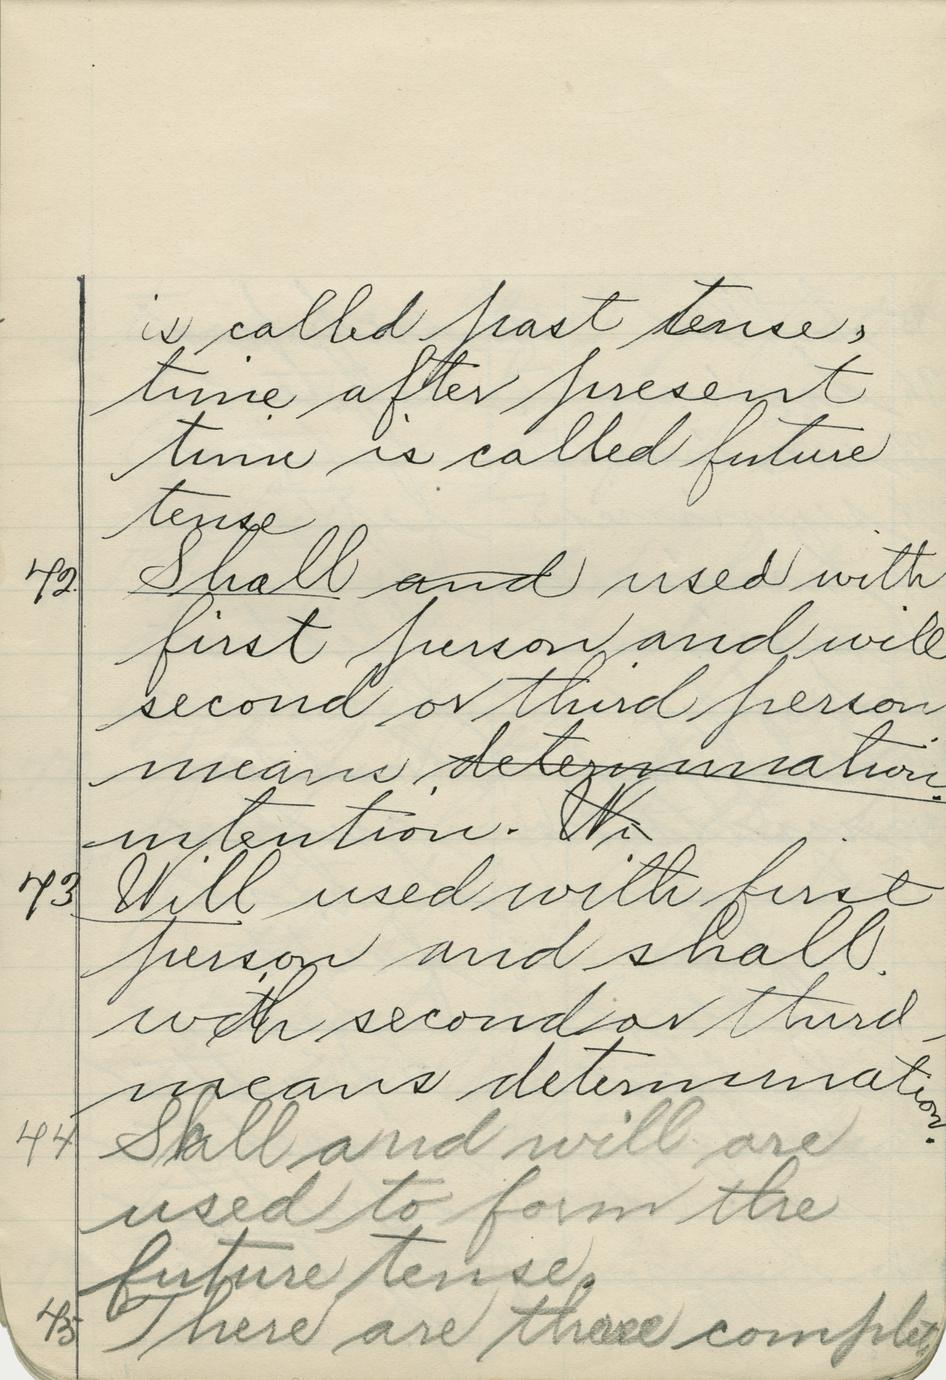 is called past tense,
time after present
time is called future
tense
42. Shall and used with
first person and will
second or third person
means determination.
intention. Wi
43 Will used with first
person and shall.
with second or third
means determination.
44 Shall and will are
used to form the
future tense.
45 There are three complet